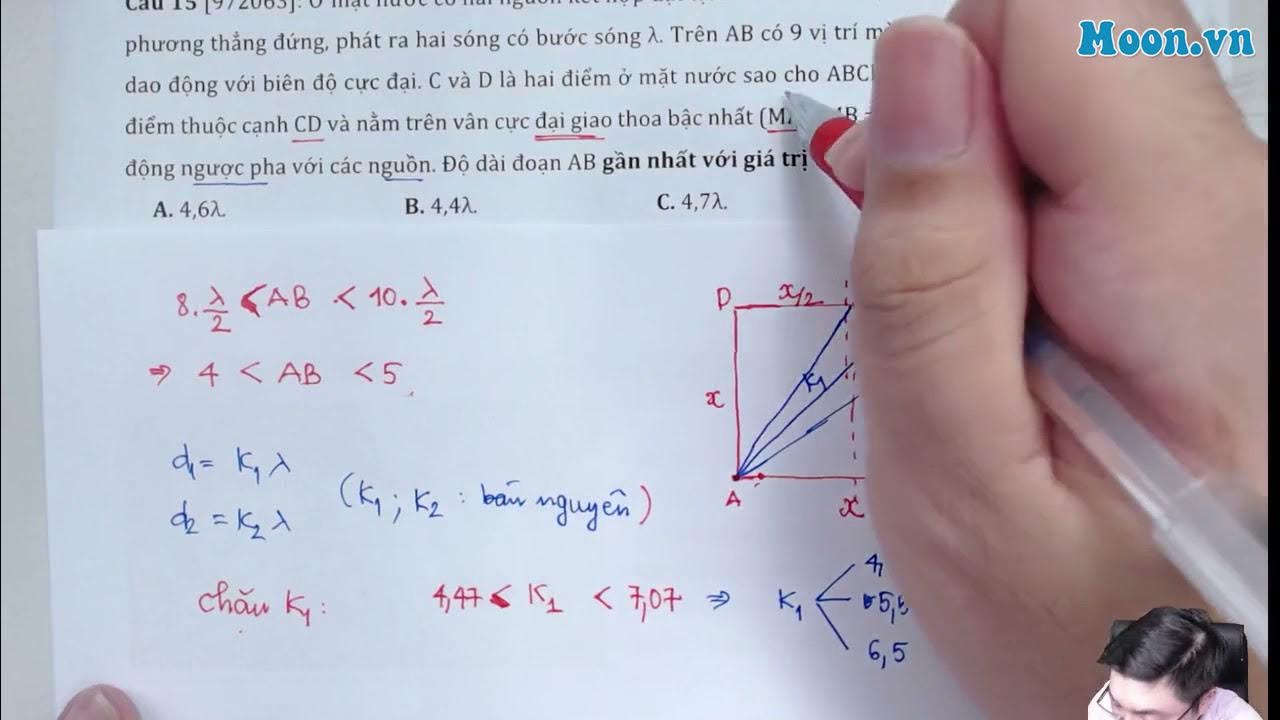 Moon.vn
Câu 15 [972063]: Ở mặt nước có hai nguồn kết hợp
phương thẳng đứng, phát ra hai sóng có bước sóng λ. Trên AB có 9 vị trí
dao động với biên độ cực đại. C và D là hai điểm ở mặt nước sao cho ABC
điểm thuộc cạnh CD và nằm trên vân cực đại giao thoa bậc nhất (M
động ngược pha với các nguồn. Độ dài đoạn AB gần nhất với giá trị
A. 4,6λ. B. 4,4λ. C. 4,7λ.
8. λ/2 < AB < 10. λ/2
⇒ 4 < AB < 5
D x/2
x
K1
A x
d1 = K1 λ
d2 = K2 λ
(K1 ; K2 : bán nguyên)
chặn K1 : 4,47 < K1 < 7,07 ⇒ K1
4,
5,5
6,5